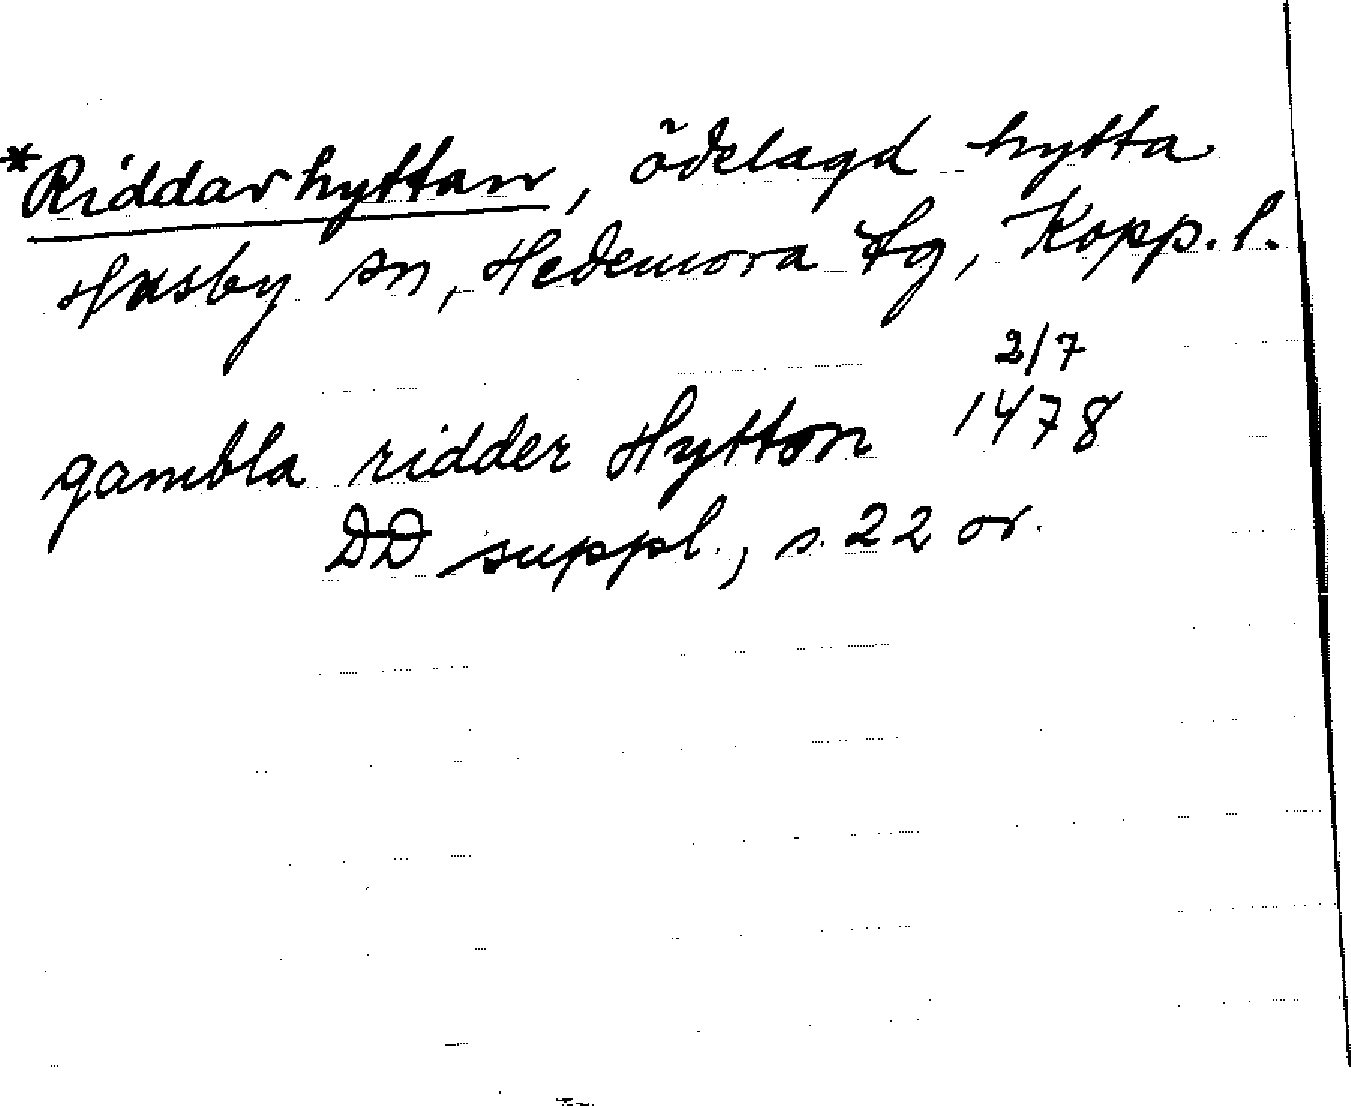 *Riddarhyttan, ödelagd hytta
Husby sn, Hedemora tg, Kopp. l.
2/7
gambla ridder Hytton 1478
DD suppl., s. 22 or.